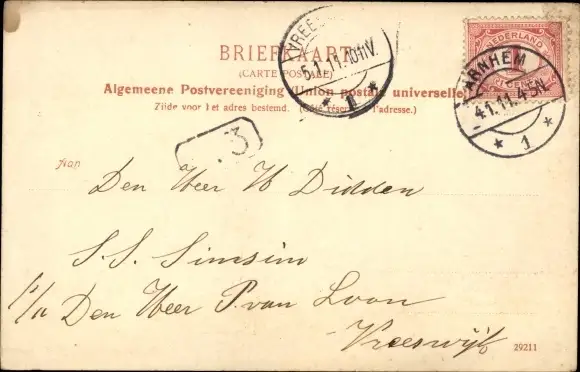 BRIEFKAART
(CARTE POSTALE)
Algemeene Postvereeniging (Union postale universelle)
Zijde voor het adres bestemd. (Côté réservé à l'adresse.)
NEDERLAND
1 CENT
ARNHEM
4.1.11.4-5N
* 1 *
VREES
5.1.11.10-11V.
* 1 *
3
Aan
Den Heer W Didden
S.S. Simsim
p/a Den Heer P. van Loon
Vreeswijk
29211